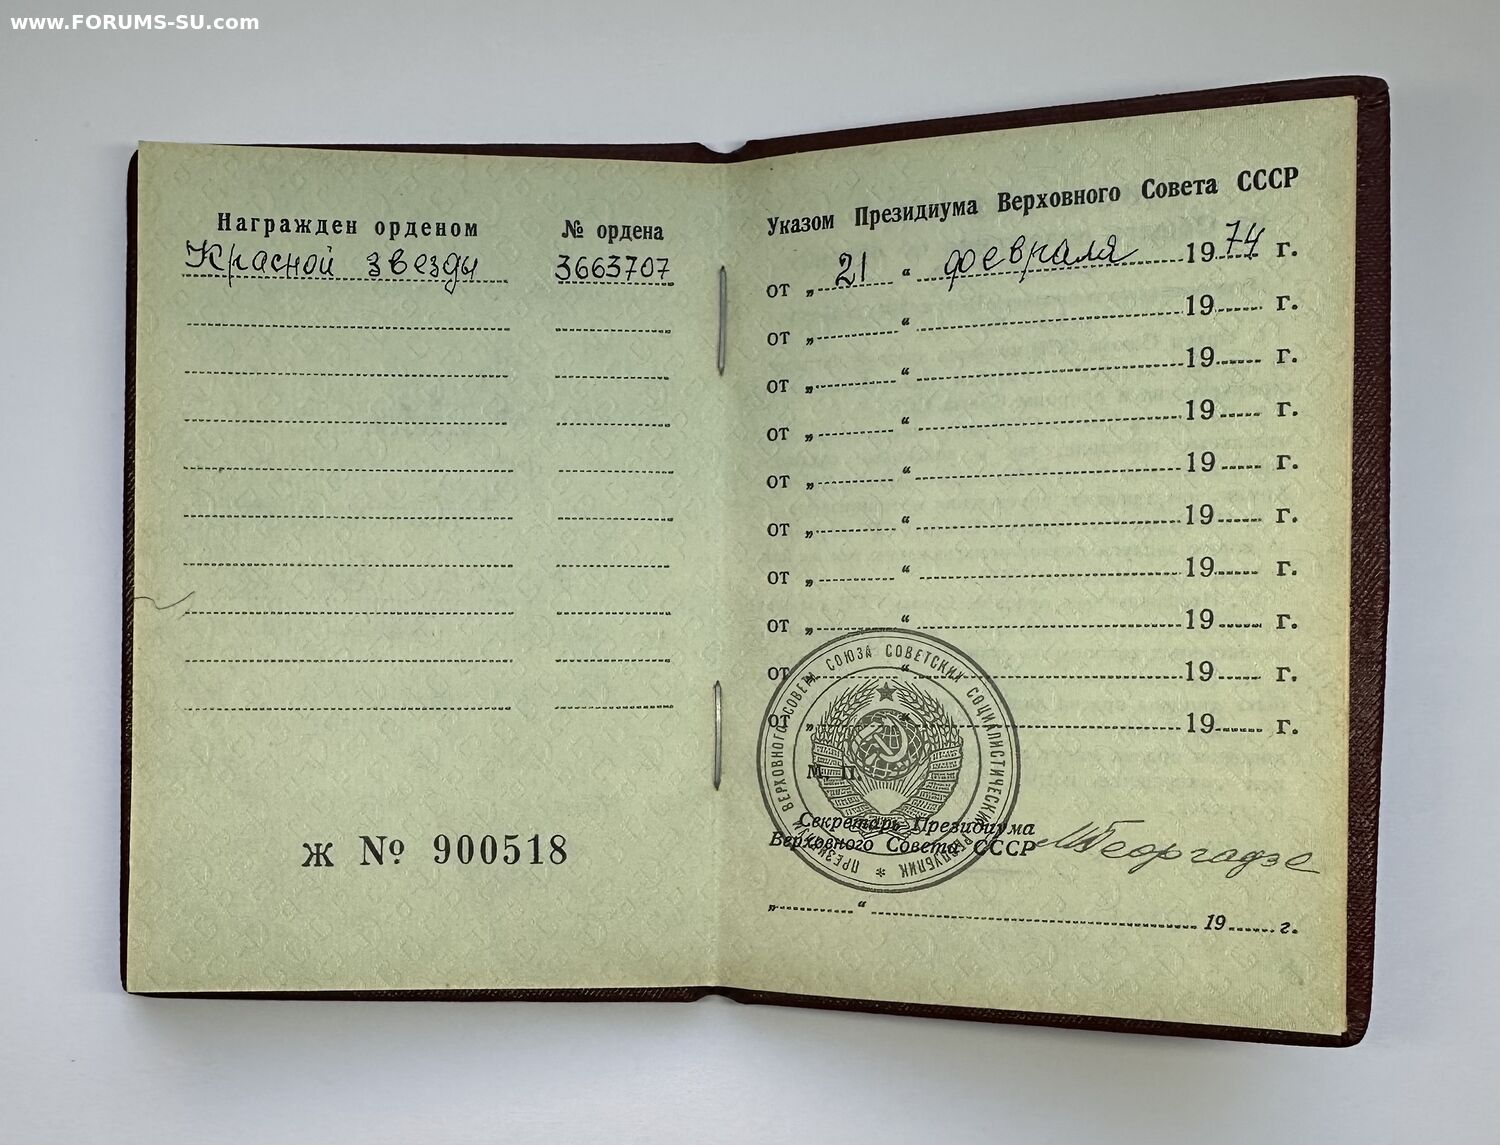 www.FORUMS-SU.com
Награжден орденом № ордена
Красной звезды 3663707
ж № 900518
Указом Президиума Верховного Совета СССР
от „ 21 “ февраля 1974 г.
от „ “ 19 г.
от „ “ 19 г.
от „ “ 19 г.
от „ “ 19 г.
от „ “ 19 г.
от „ “ 19 г.
от „ “ 19 г.
от „ “ 19 г.
от „ “ 19 г.
ПРЕЗИДИУМ ВЕРХОВНОГО СОВЕТА СОЮЗА СОВЕТСКИХ СОЦИАЛИСТИЧЕСКИХ РЕСПУБЛИК *
М. П.
Секретарь Президиума
Верховного Совета СССР
МГеоргадзе
„ “ 19 г.